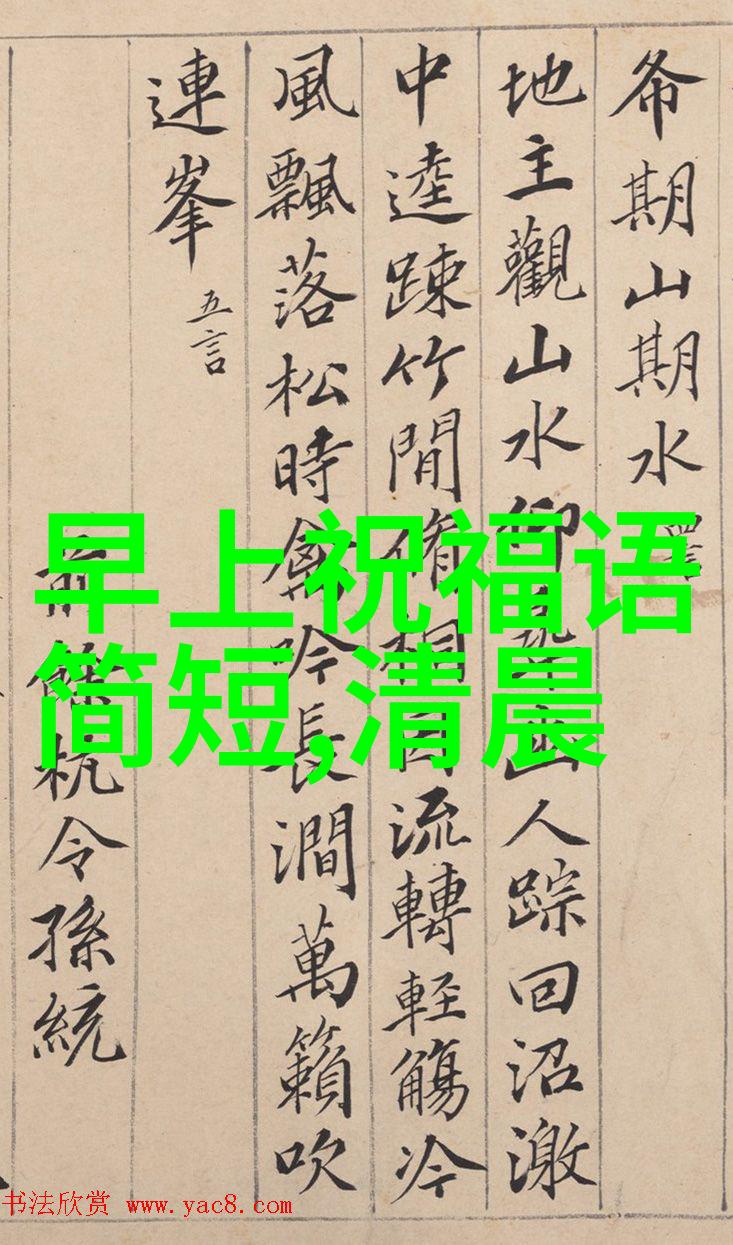 希期山期水 四言
地主觀山水仰尋幽人踪回沼激
中逵踈竹間脩桐因流轉輕觴冷
風飄落松時禽吟長澗萬籟吹
連峯 五言
前餘杭令孫統
早上祝福语
简短,清晨
书法欣赏 www.yac8.com